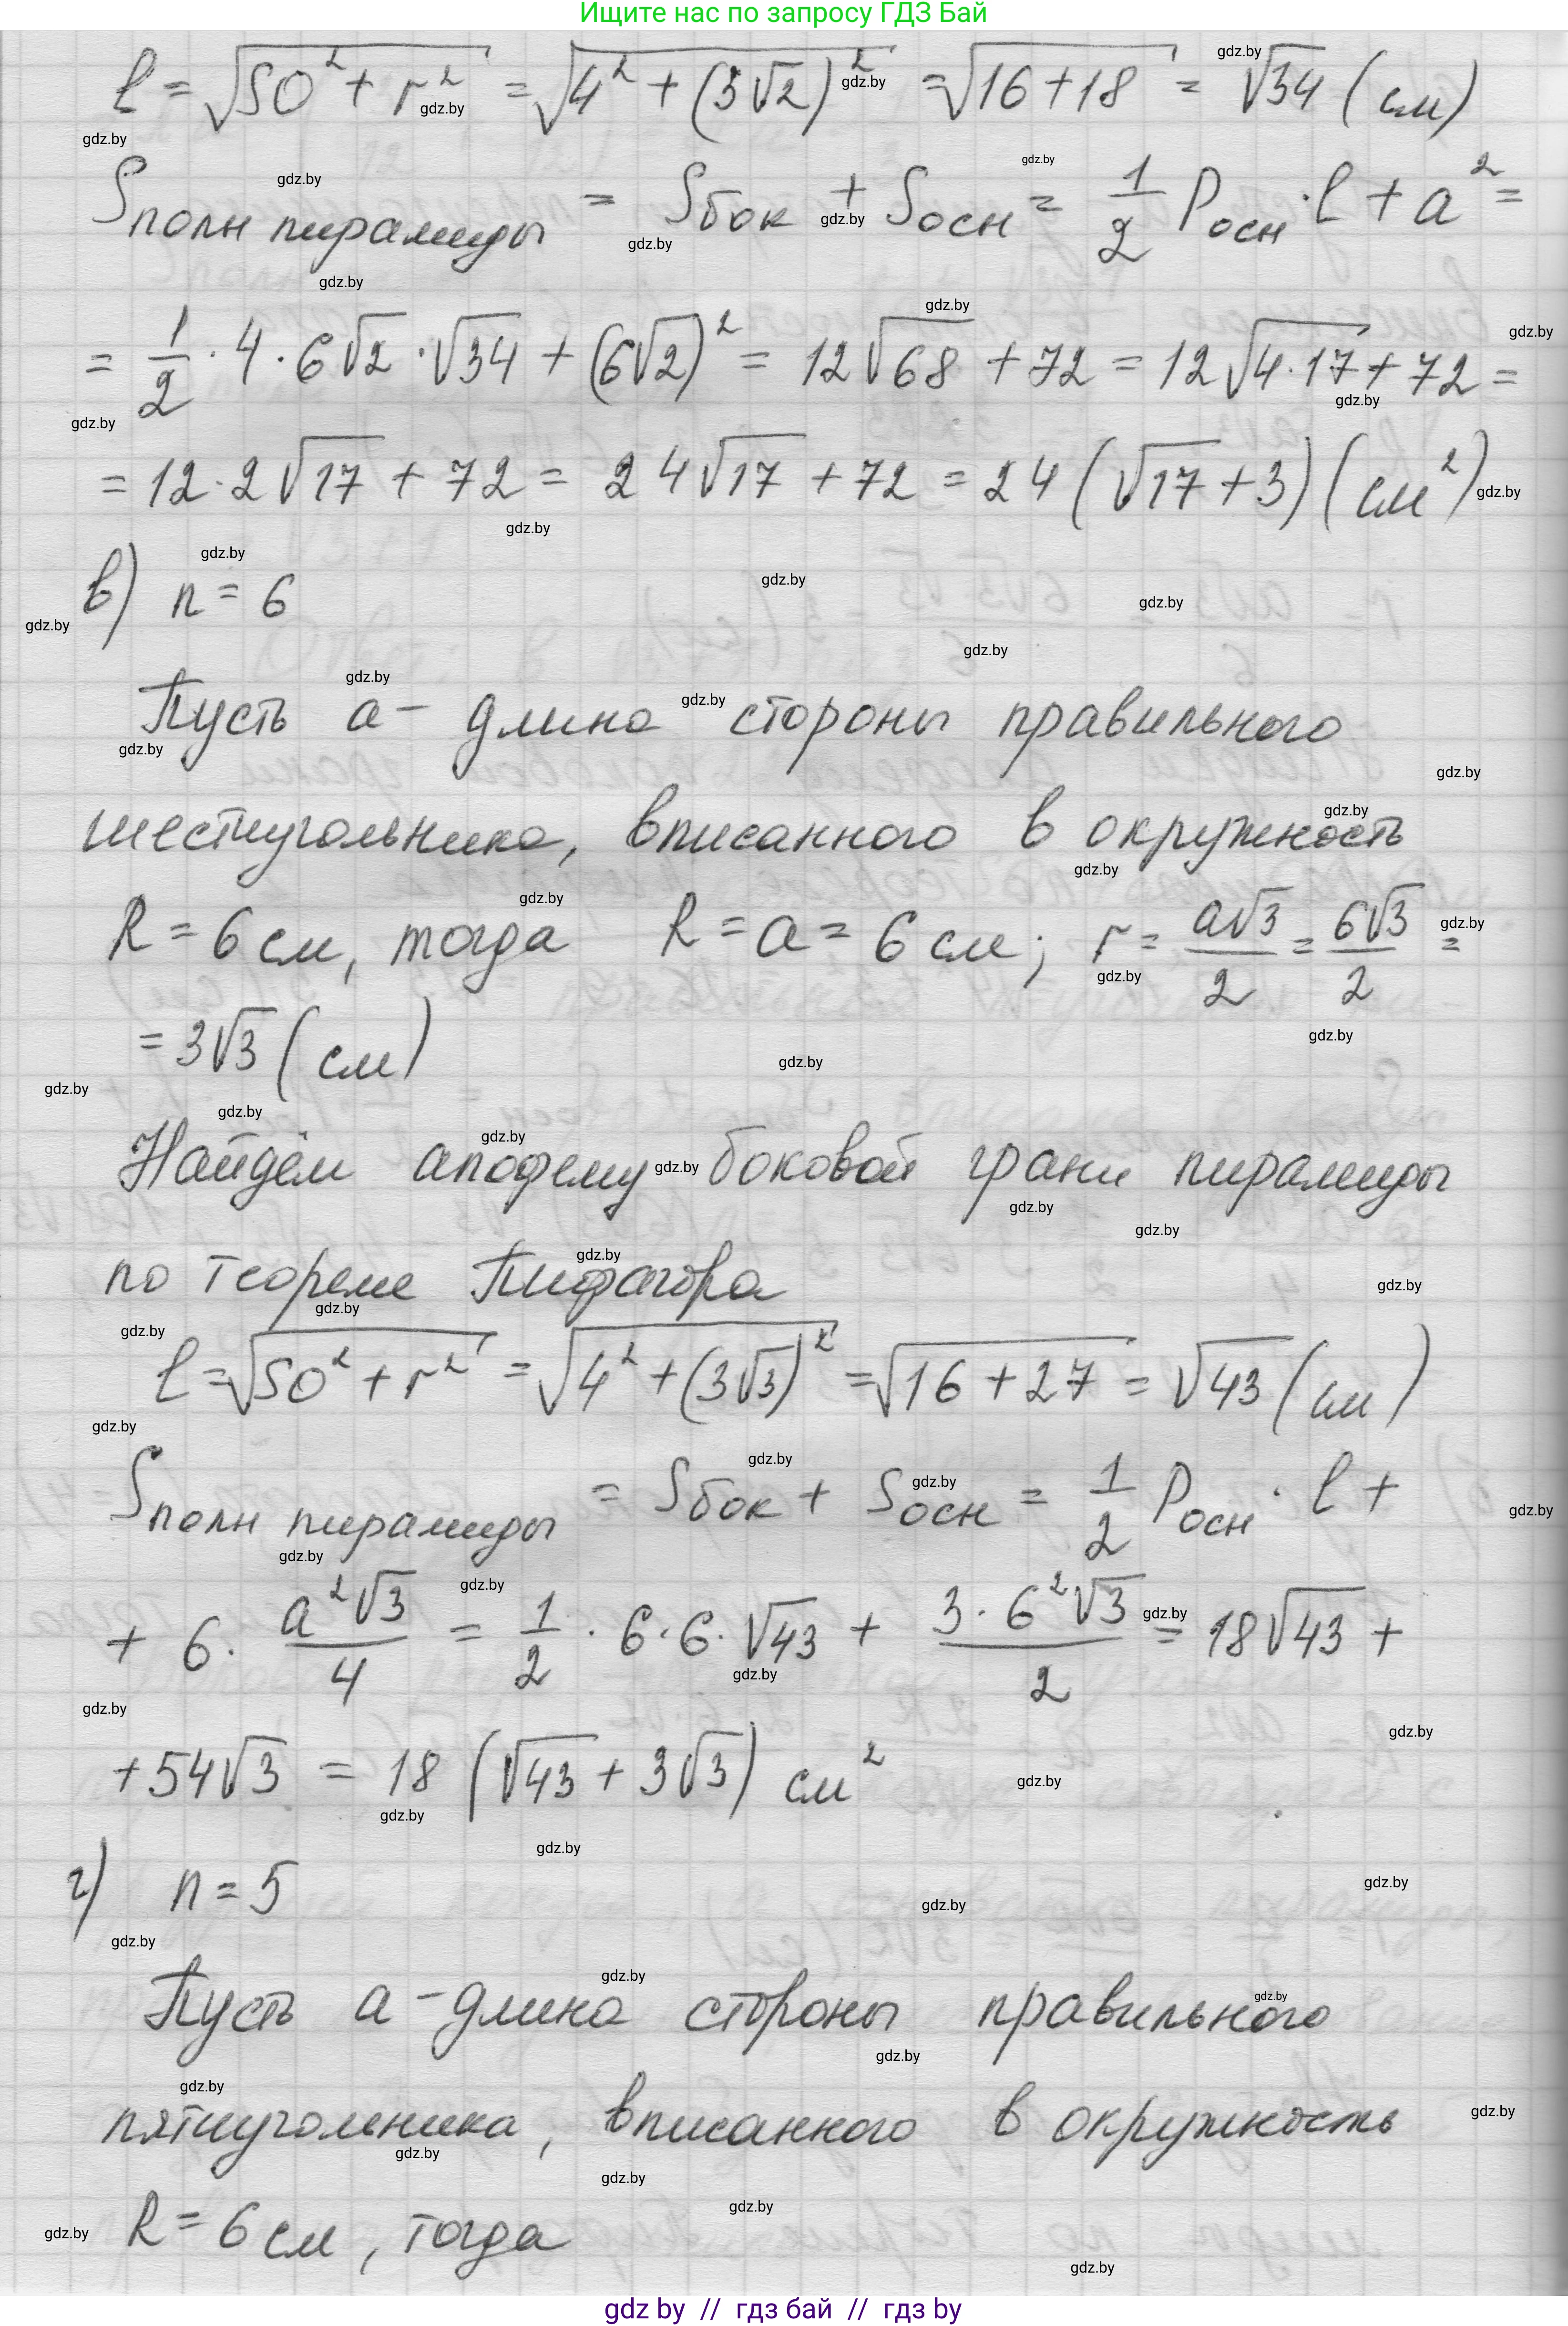 Ищите нас по запросу ГДЗ Бай
l = √(SO² + r²) = √(4² + (3√2)²) = √(16 + 18) = √34 (см)
Sполн пирамиды = Sбок + Sосн = 1/2 Pосн · l + a² =
= 1/2 · 4 · 6√2 · √34 + (6√2)² = 12√68 + 72 = 12√(4·17) + 72 =
= 12 · 2√17 + 72 = 24√17 + 72 = 24(√17 + 3)(см²)
в) n = 6
Пусть a - длина стороны правильного
шестиугольника, вписанного в окружность
R = 6 см, тогда R = a = 6 см; r = a√3/2 = 6√3/2 =
= 3√3 (см)
Найдём апофему боковой грани пирамиды
по теореме Пифагора
l = √(SO² + r²) = √(4² + (3√3)²) = √(16 + 27) = √43 (см)
Sполн пирамиды = Sбок + Sосн = 1/2 Pосн · l +
+ 6 · a²√3/4 = 1/2 · 6 · 6 · √43 + 3 · 6²√3/2 = 18√43 +
+ 54√3 = 18 (√43 + 3√3) см²
г) n = 5
Пусть a - длина стороны правильного
пятиугольника, вписанного в окружность
R = 6 см, тогда
gdz by // гдз бай // гдз by